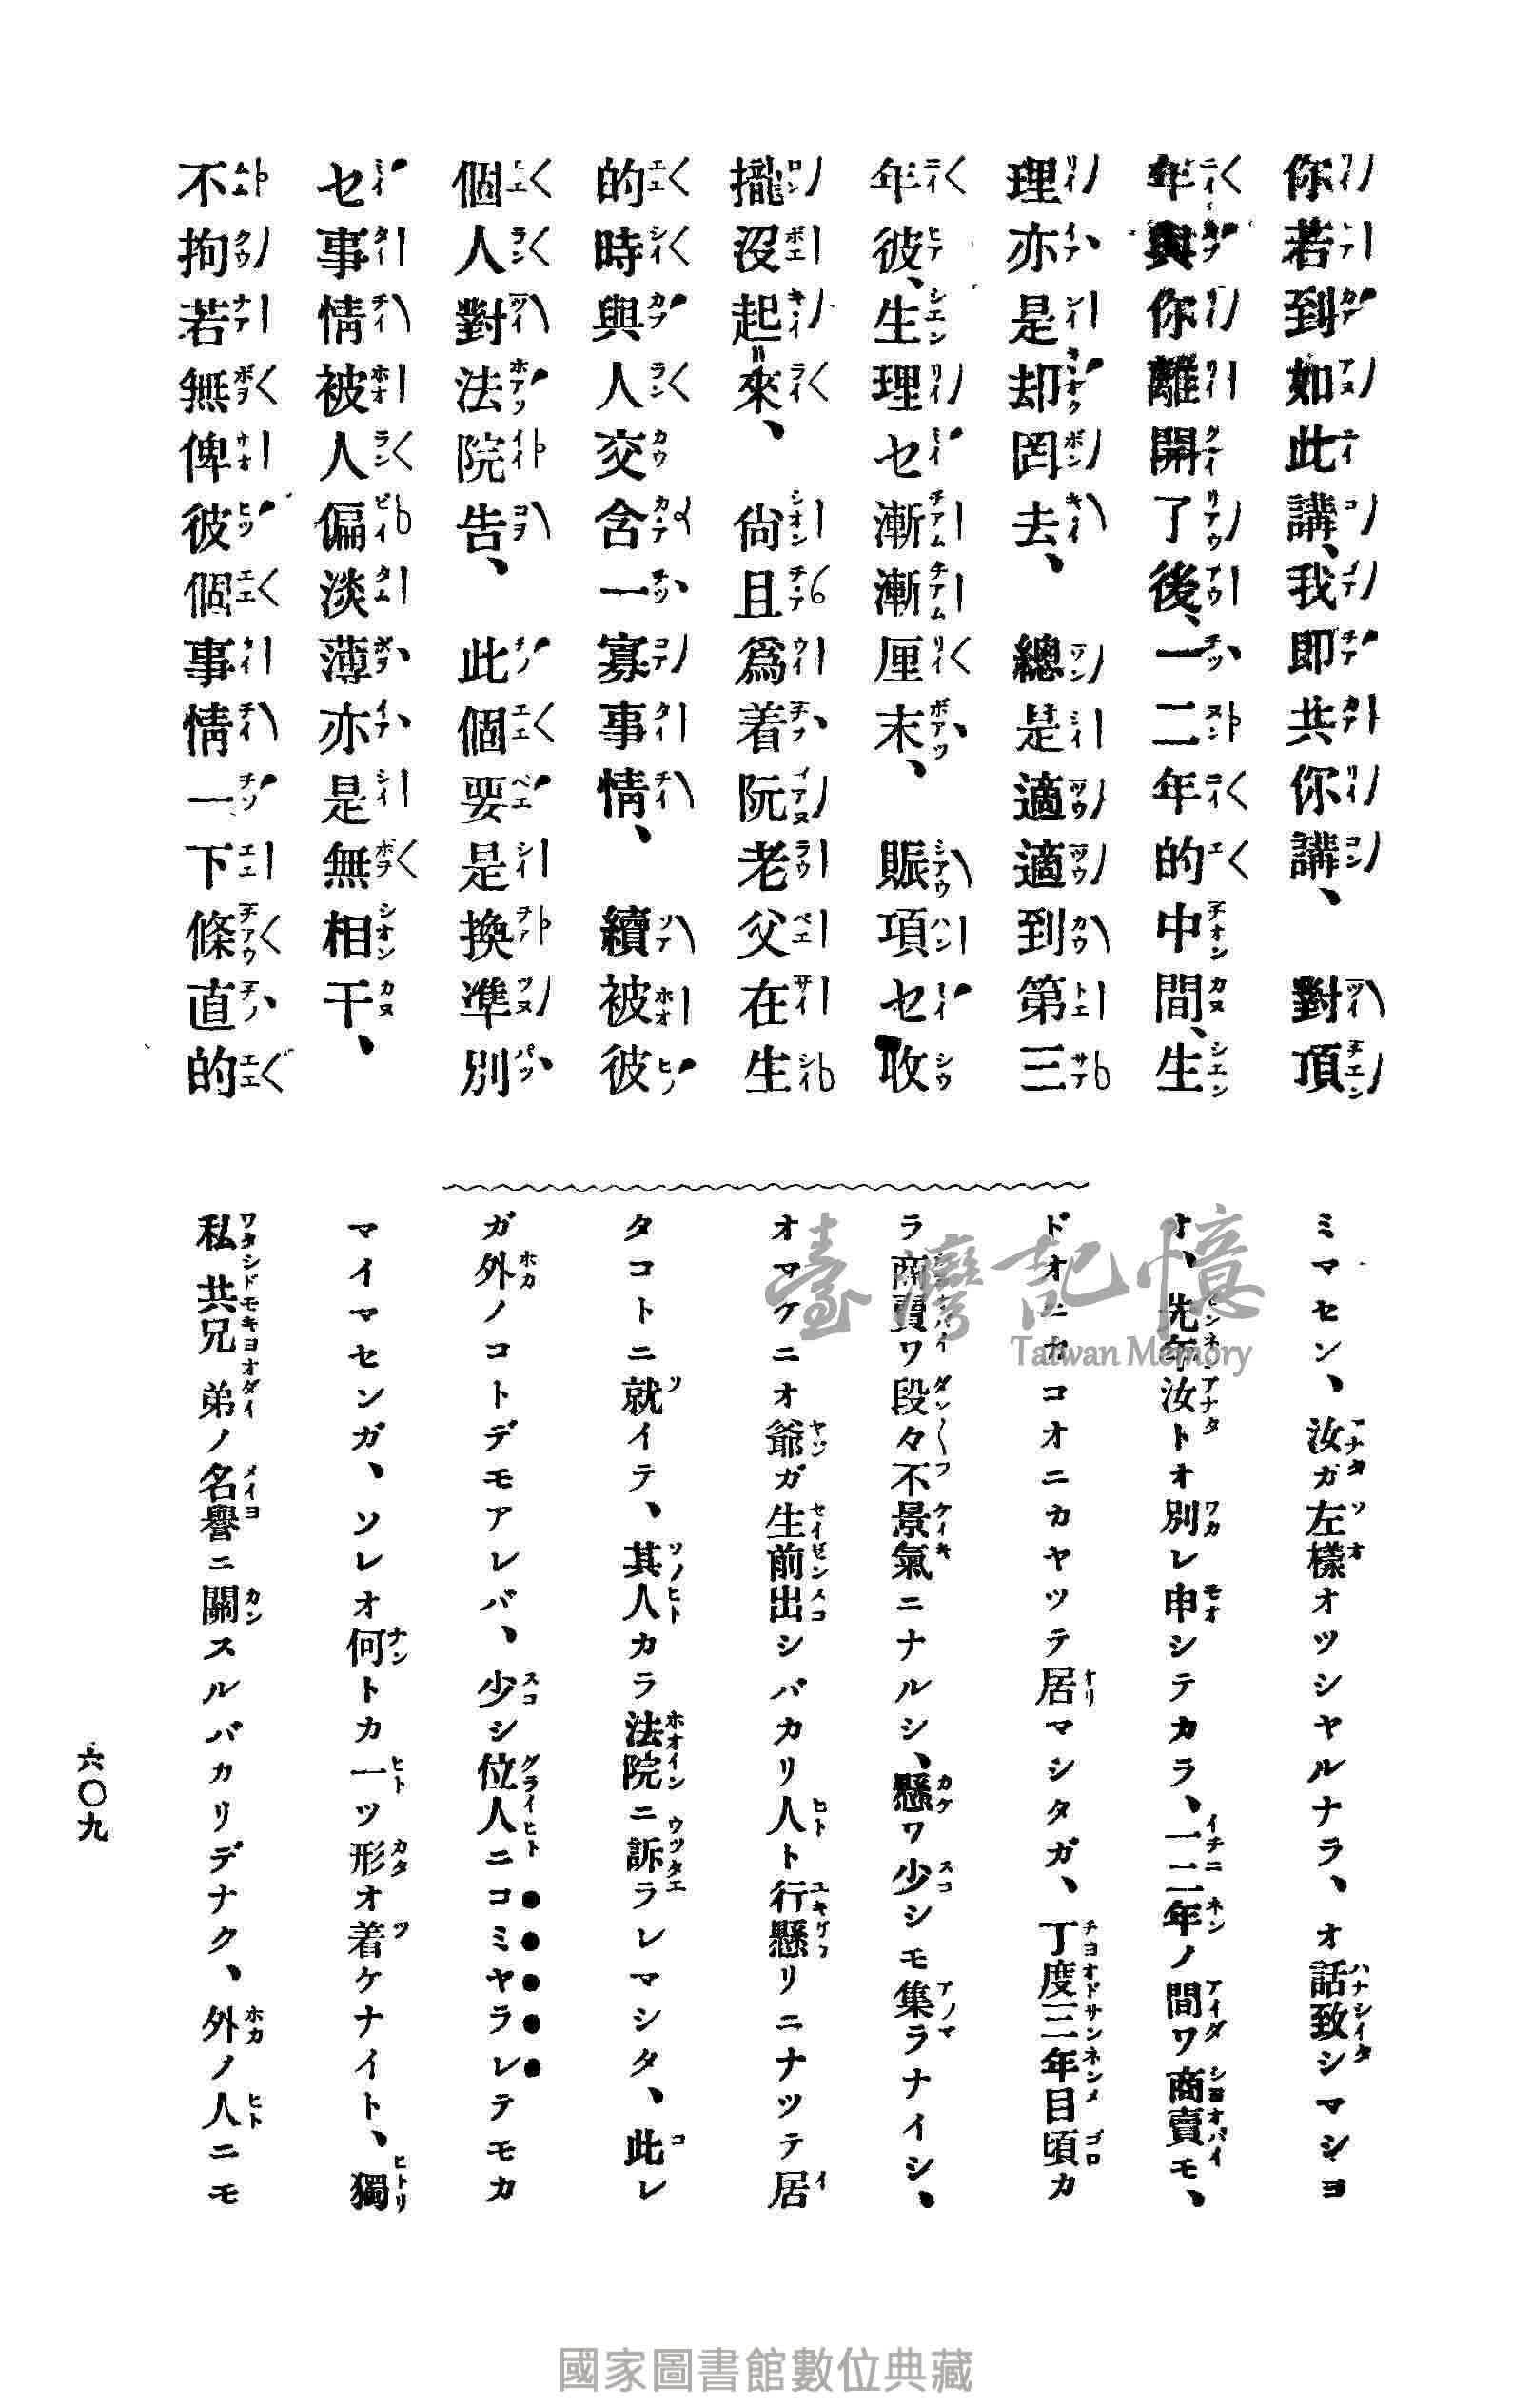 你若到如此講、我即共你講、對頂
年與你離開了後、一二年的中間、生
理亦是却罔去、總是適適到第三
年彼、生理乜漸漸厘末、賬項乜收
攏沒起來、尙且爲着阮老父在生
的時與人交含一寡事情、續被彼
個人對法院告、此個要是換準別
乜事情被人偏淡薄亦是無相干、
不拘若無俾彼個事情一下條直的
ミマセン、汝ガ左樣オツシヤルナラ、オ話致シマシヨ
オ、先年汝トオ別レ申シテカラ、一二年ノ間ワ商賣モ、
ドオニカコオニカヤツテ居マシタガ、丁度三年目頃カ
ラ商賣ワ段々不景氣ニナルシ、懸ワ少シモ集ラナイシ、
オマケニオ爺ガ生前出シバカリ人ト行懸リニナツテ居
タコトニ就イテ、其人カラ法院ニ訴ラレマシタ、此レ
ガ外ノコトデモアレバ、少シ位人ニコミヤラレテモカ
マイマセンガ、ソレオ何トカ一ツ形オ着ケナイト、獨
私共兄弟ノ名譽ニ關スルバカリデナク、外ノ人ニモ
六〇九
臺灣記憶
Taiwan Memory
國家圖書館數位典藏